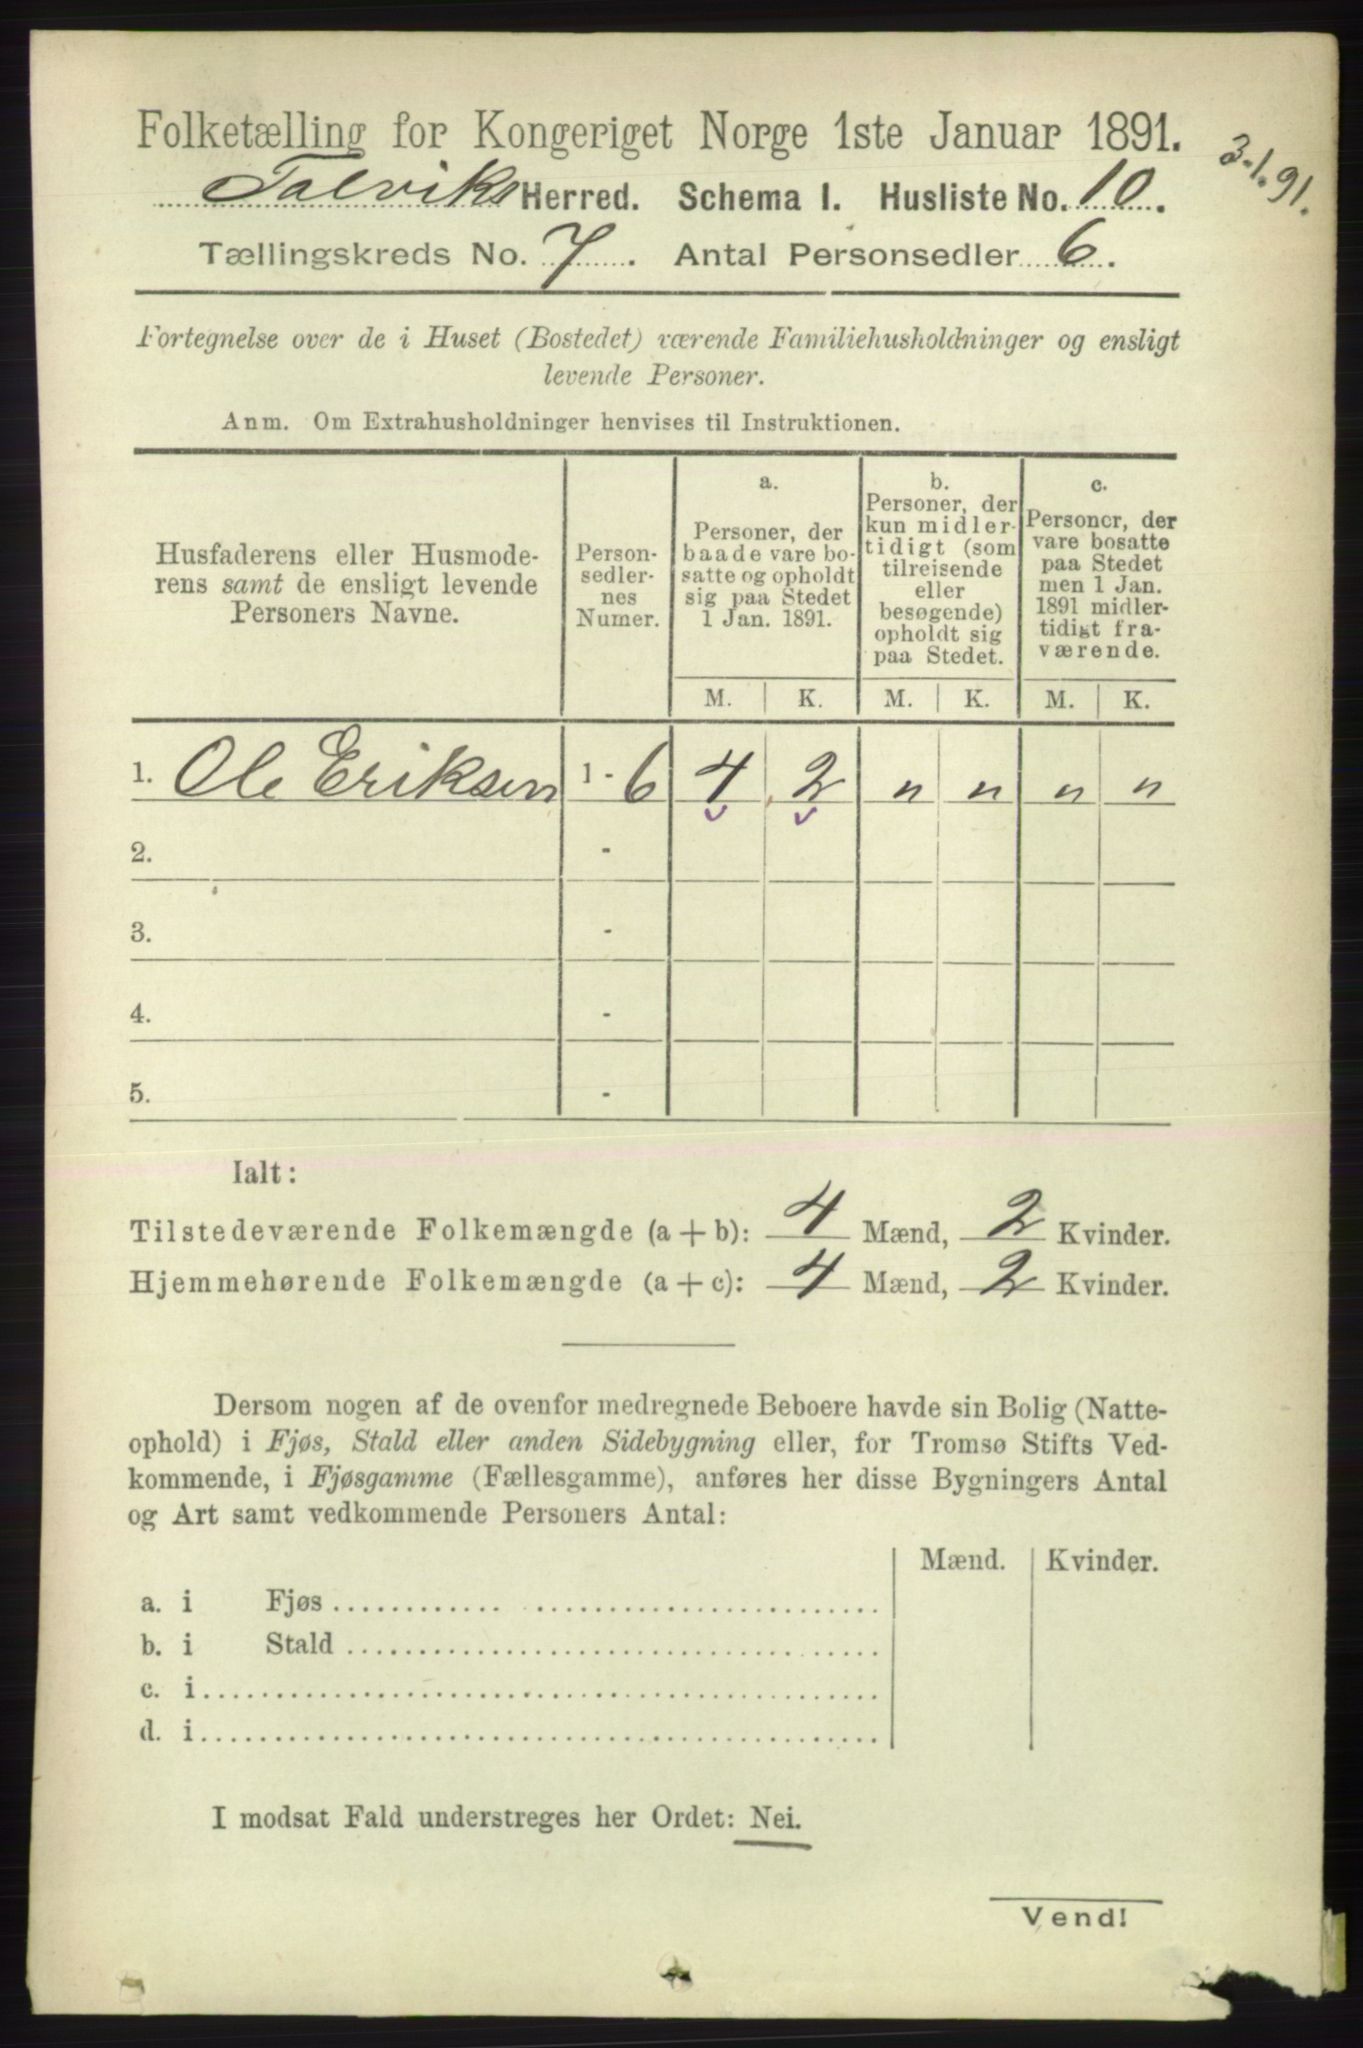 Folketælling for Kongeriget Norge 1ste Januar 1891.
3-1.91.
Talviks Herred. Schema I. Husliste No. 10.
Tællingskreds No. 7. Antal Personsedler 6.
Fortegnelse over de i Huset (Bostedet) værende Familiehusholdninger og ensligt
levende Personer.
Anm. Om Extrahusholdninger henvises til Instruktionen.
Husfaderens eller Husmode-
rens samt de ensligt levende
Personers Navne.
Person-
sedler-
nes
Numer.
a.
Personer, der
baade vare bo-
satte og opholdt
sig paa Stedet
1 Jan. 1891.
b.
Personer, der
kun midler-
tidigt (som
tilreisende
eller
besøgende)
opholdt sig
paa Stedet.
c.
Personer, der
vare bosatte
paa Stedet
men 1 Jan.
1891 midler-
tidigt fra-
værende.
M. K. M. K. M. K.
1. Ole Eriksen 1 - 6 4 2 " " " "
2. -
3. -
4. -
5. -
Ialt:
Tilstedeværende Folkemængde (a + b): 4 Mænd, 2 Kvinder.
Hjemmehørende Folkemængde (a + c): 4 Mænd, 2 Kvinder.
Dersom nogen af de ovenfor medregnede Beboere havde sin Bolig (Natte-
ophold) i Fjøs, Stald eller anden Sidebygning eller, for Tromsø Stifts Ved-
kommende, i Fjøsgamme (Fællesgamme), anføres her disse Bygningers Antal
og Art samt vedkommende Personers Antal:
Mænd. Kvinder.
a. i Fjøs
b. i Stald
c. i
d. i
I modsat Fald understreges her Ordet: Nei.
Vend!